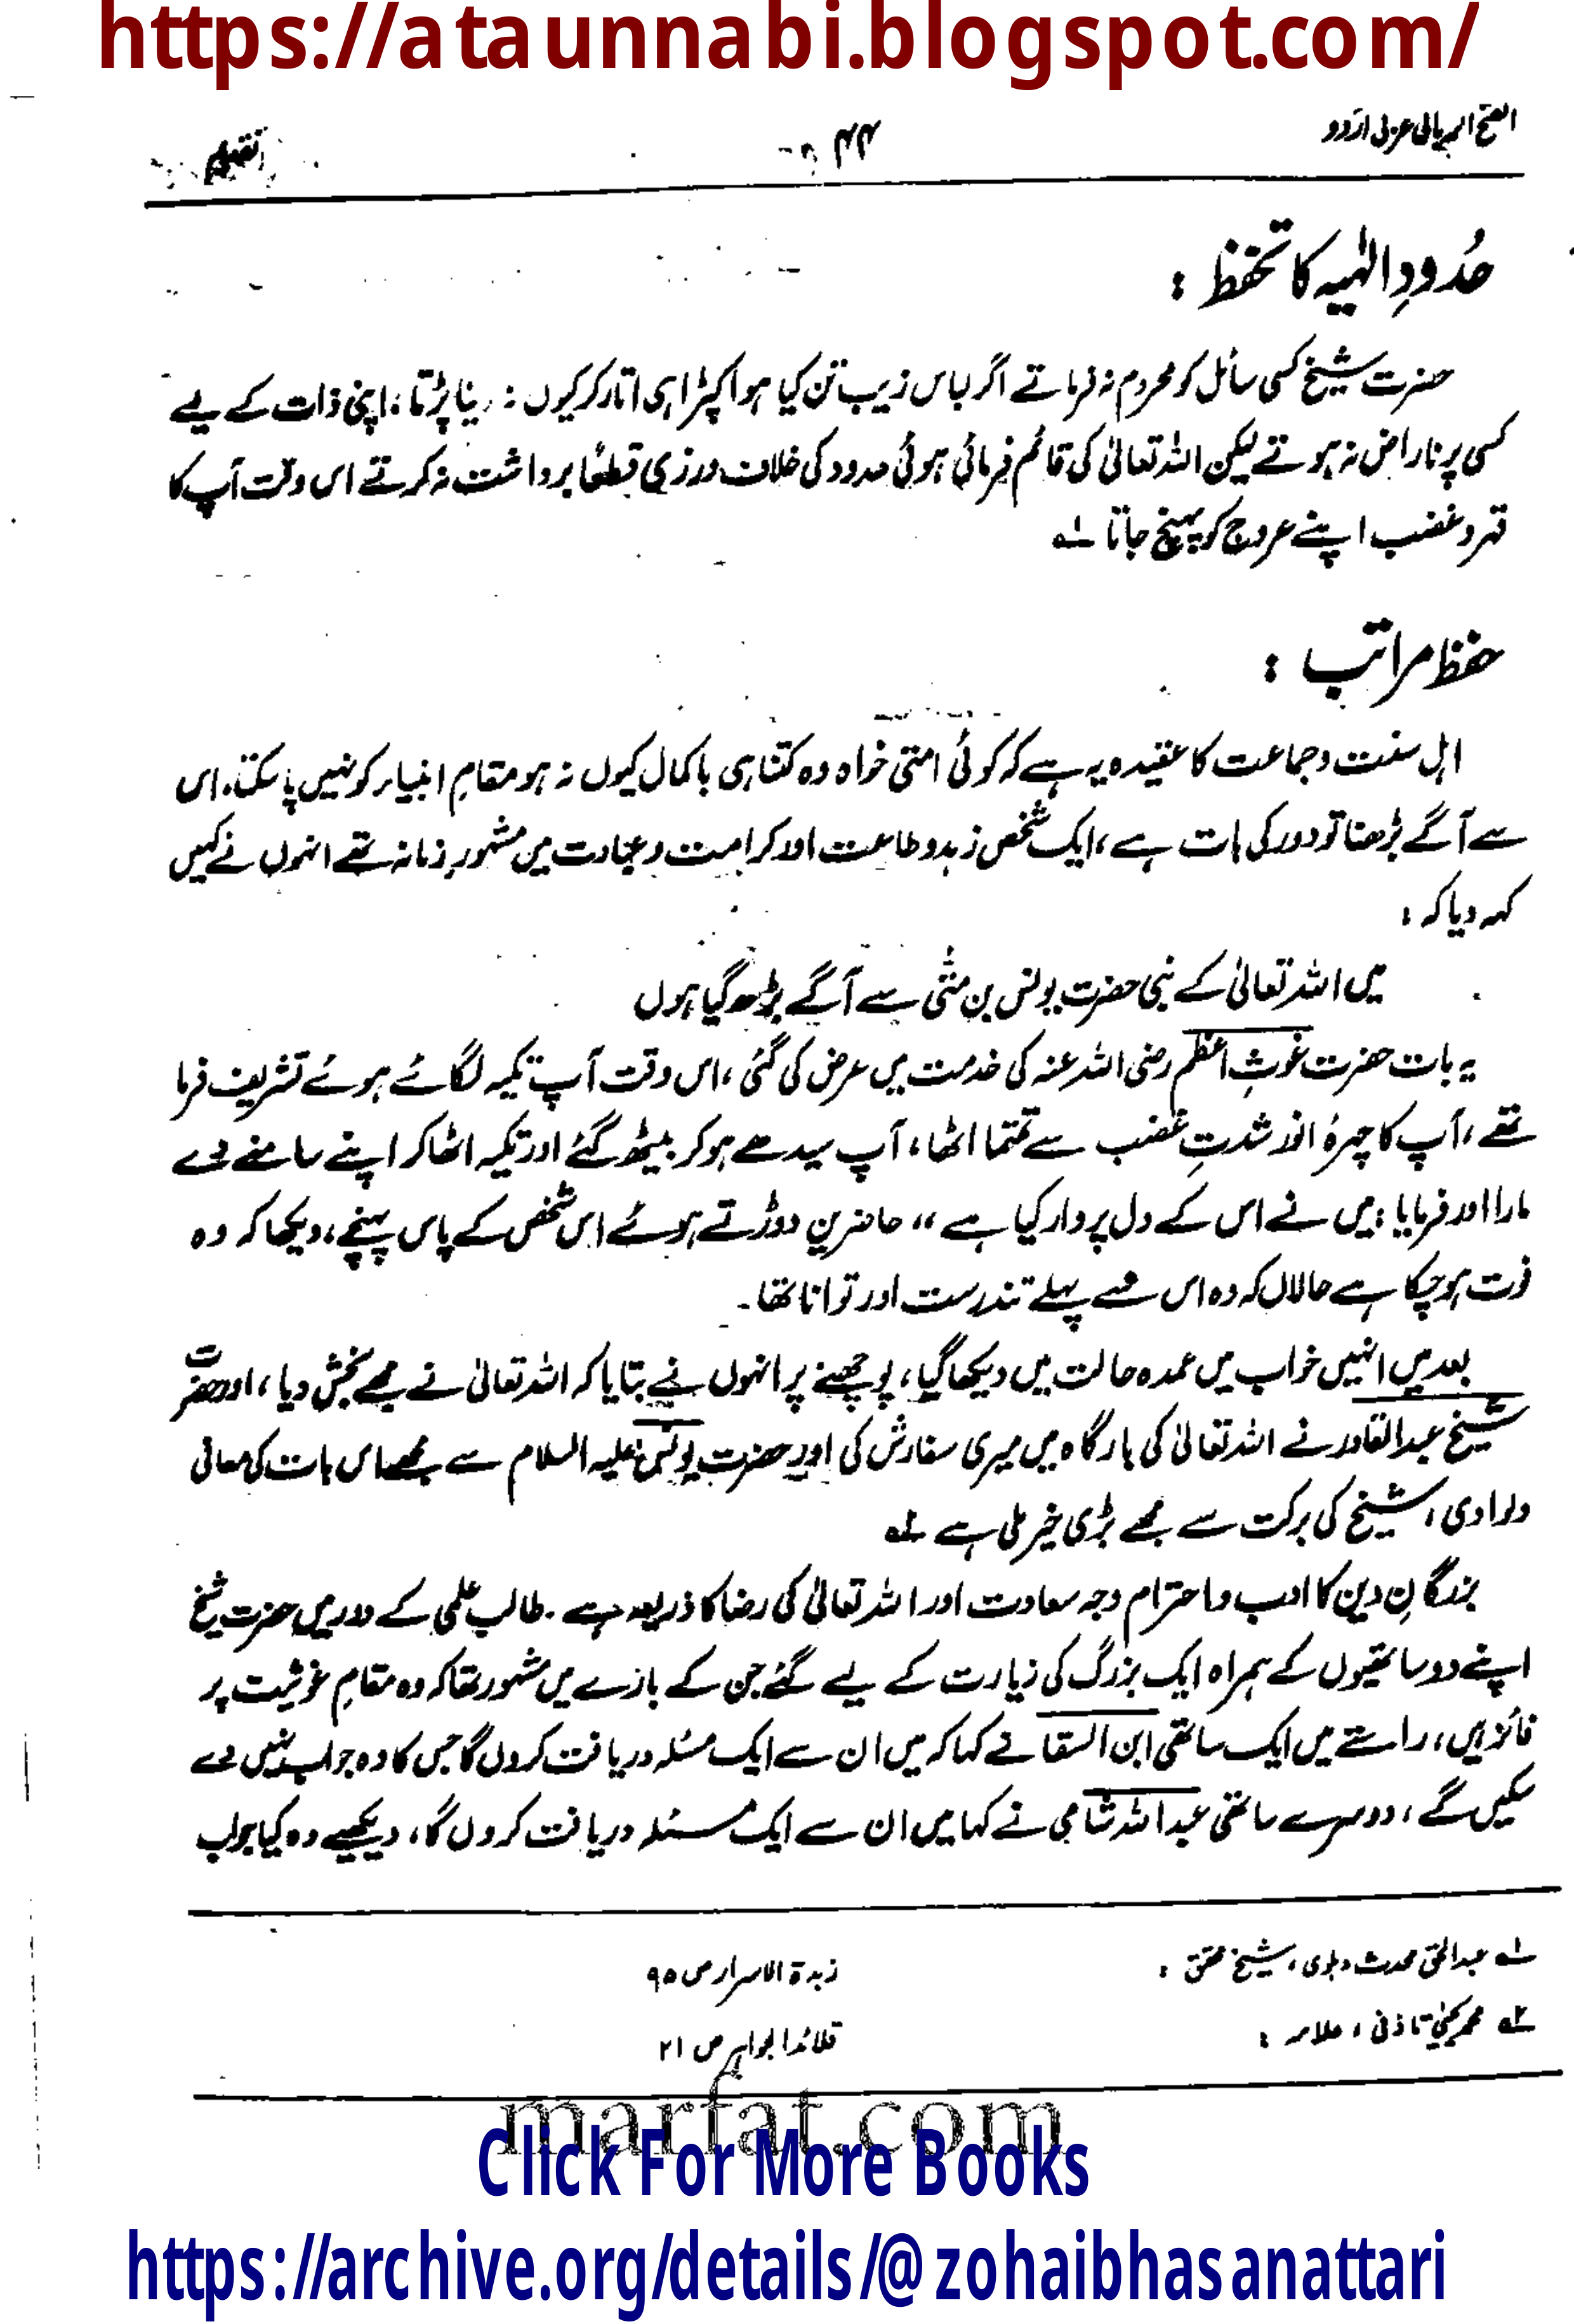 https://ataunnabi.blogspot.com/
الفتح الربانی عربی اردو
۴۴
تقدیم
حُدودِ الٰہیہ کا تحفظ :
حضرت شیخ کسی سائل کو محروم نہ فرماتے اگر لباس زیب تن کیا ہوا کپڑا ہی اتار کر کیوں نہ دینا پڑتا، اپنی ذات کے لیے
کسی پر ناراض نہ ہوتے لیکن اللہ تعالیٰ کی قائم فرمائی ہوئی حدود کی خلاف ورزی قطعًا برداشت نہ کرتے اس وقت آپ کا
قہر و غضب اپنے عروج کو پہنچ جاتا ۱؎
حفظ مراتب :
اہل سنت و جماعت کا عقیدہ یہ ہے کہ کوئی امتی خواہ وہ کتنا ہی باکمال کیوں نہ ہو مقامِ انبیاء کو نہیں پا سکتا۔ اس
سے آگے بڑھنا تو دور کی بات ہے، ایک شخص زہد و طاعت اور کرامت و عبادت میں مشہورِ زمانہ تھے انہوں نے کہیں
کہہ دیا کہ :
میں اللہ تعالیٰ کے نبی حضرت یونس بن متّٰی سے آگے بڑھ گیا ہوں
یہ بات حضرت غوثِ اعظم رضی اللہ عنہ کی خدمت میں عرض کی گئی، اس وقت آپ تکیہ لگائے ہوئے تشریف فرما
تھے، آپ کا چہرۂ انور شدتِ غضب سے تمتما اٹھا، آپ سیدھے ہو کر بیٹھ گئے اور تکیہ اٹھا کر اپنے سامنے دے
مارا اور فرمایا : میں نے اس کے دل پر وار کیا ہے “ حاضرین دوڑتے ہوئے اس شخص کے پاس پہنچے، دیکھا کہ وہ
فوت ہو چکا ہے حالاں کہ وہ اس سے پہلے تندرست اور توانا تھا۔
بعد میں انہیں خواب میں عمدہ حالت میں دیکھا گیا، پوچھنے پر انہوں نے بتایا کہ اللہ تعالیٰ نے مجھے بخش دیا، اور حضرت
شیخ عبدالقادر نے اللہ تعالیٰ کی بارگاہ میں میری سفارش کی اور حضرت یونس علیہ السلام سے مجھے اس بات کی معافی
دلوا دی، شیخ کی برکت سے مجھے بڑی خیر ملی ہے ۲؎
بزرگانِ دین کا ادب و احترام وجہ سعادت اور اللہ تعالیٰ کی رضا کا ذریعہ ہے۔ طالب علمی کے دور میں حضرت شیخ
اپنے دو ساتھیوں کے ہمراہ ایک بزرگ کی زیارت کے لیے گئے جن کے بارے میں مشہور تھا کہ وہ مقامِ غوثیت پر
فائز ہیں، راستے میں ایک ساتھی ابن السقا نے کہا کہ میں ان سے ایک مسئلہ دریافت کروں گا جس کا وہ جواب نہیں دے
سکیں گے، دوسرے ساتھی عبداللہ شامی نے کہا میں ان سے ایک مسئلہ دریافت کروں گا، دیکھیے وہ کیا جواب
۱؎ عبدالحق محدث دہلوی، شیخ محقق :
زبدۃ الاسرار ص ۹۵
۲؎ محمد یحیٰی تاذفی، علامہ :
قلائد الجواہر ص ۲۱
marfat.com
Click For More Books
https://archive.org/details/@zohaibhasanattari